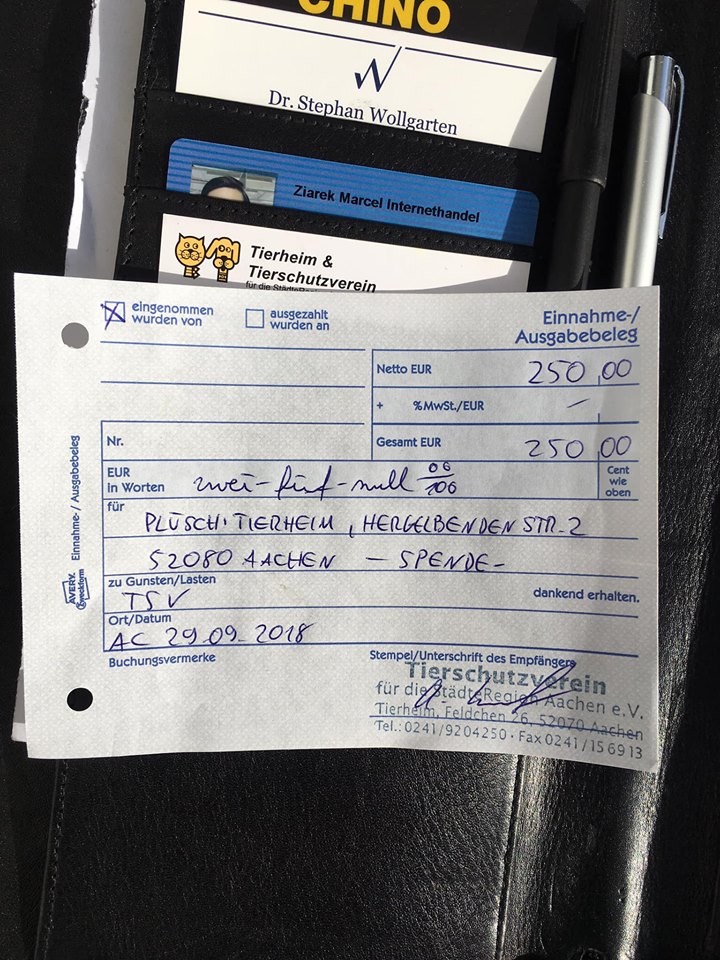 CHINO
Dr. Stephan Wollgarten
Ziarek Marcel Internethandel
Tierheim &
Tierschutzverein
für die StädteRegion
eingenommen wurden von
ausgezahlt wurden an
Einnahme-/
Ausgabebeleg
Netto EUR 250,00
+ %MwSt./EUR –
Nr.
Gesamt EUR 250,00
EUR in Worten zwei-fünf-null 00/100
Cent wie oben
für
PLÜSCH-TIERHEIM, HERGELBENDEN STR. 2
52080 AACHEN — SPENDE-
zu Gunsten/Lasten
TSV
dankend erhalten.
Ort/Datum
AC 29.09.2018
Buchungsvermerke
Stempel/Unterschrift des Empfängers
Tierschutzverein
für die StädteRegion Aachen e.V.
Tierheim, Feldchen 26, 52070 Aachen
Tel.: 0241/9204250 · Fax 0241/156913
AVERY Zweckform
Einnahme-/ Ausgabebeleg